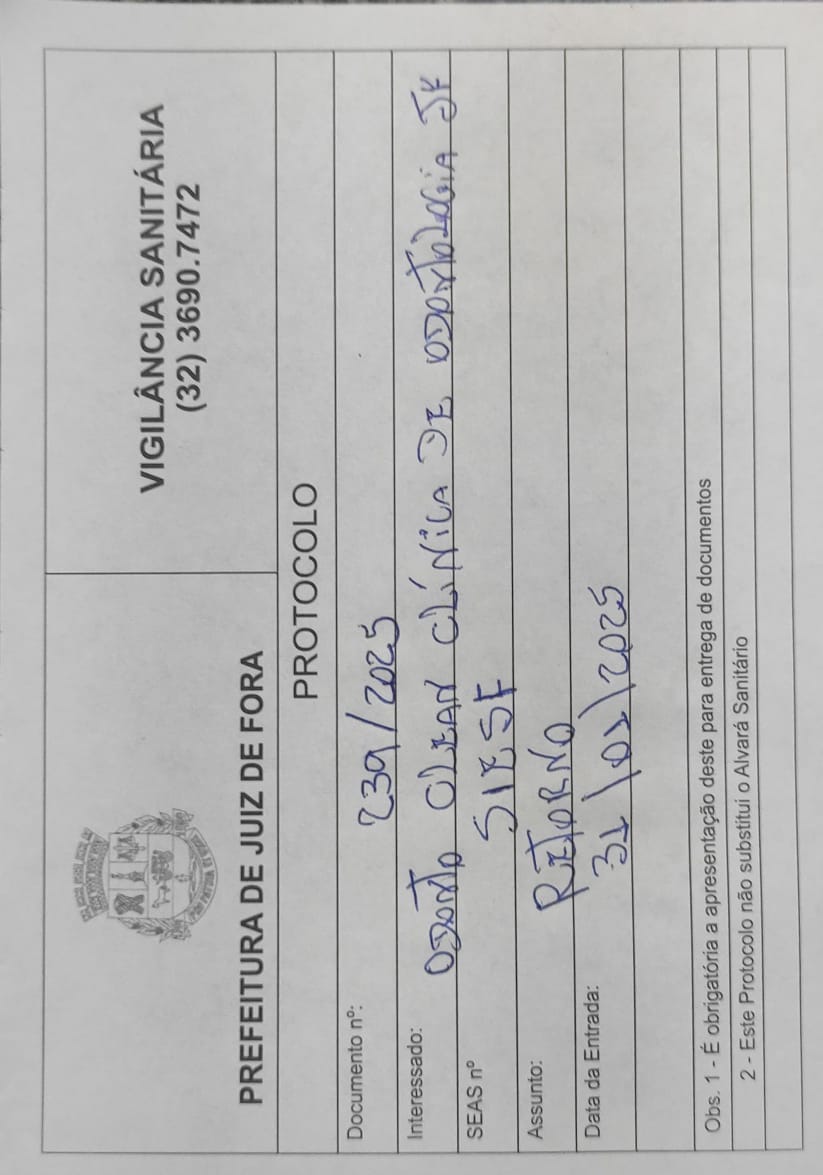 PREFEITURA DE JUIZ DE FORA
VIGILÂNCIA SANITÁRIA
(32) 3690.7472
PROTOCOLO
Documento nº: 239/2025
Interessado: ODONTO CLEAN CLÍNICA DE ODONTOLOGIA JF
SEAS nº
Assunto: RETORNO
Data da Entrada: 31/01/2025
Obs. 1 - É obrigatória a apresentação deste para entrega de documentos
2 - Este Protocolo não substitui o Alvará Sanitário